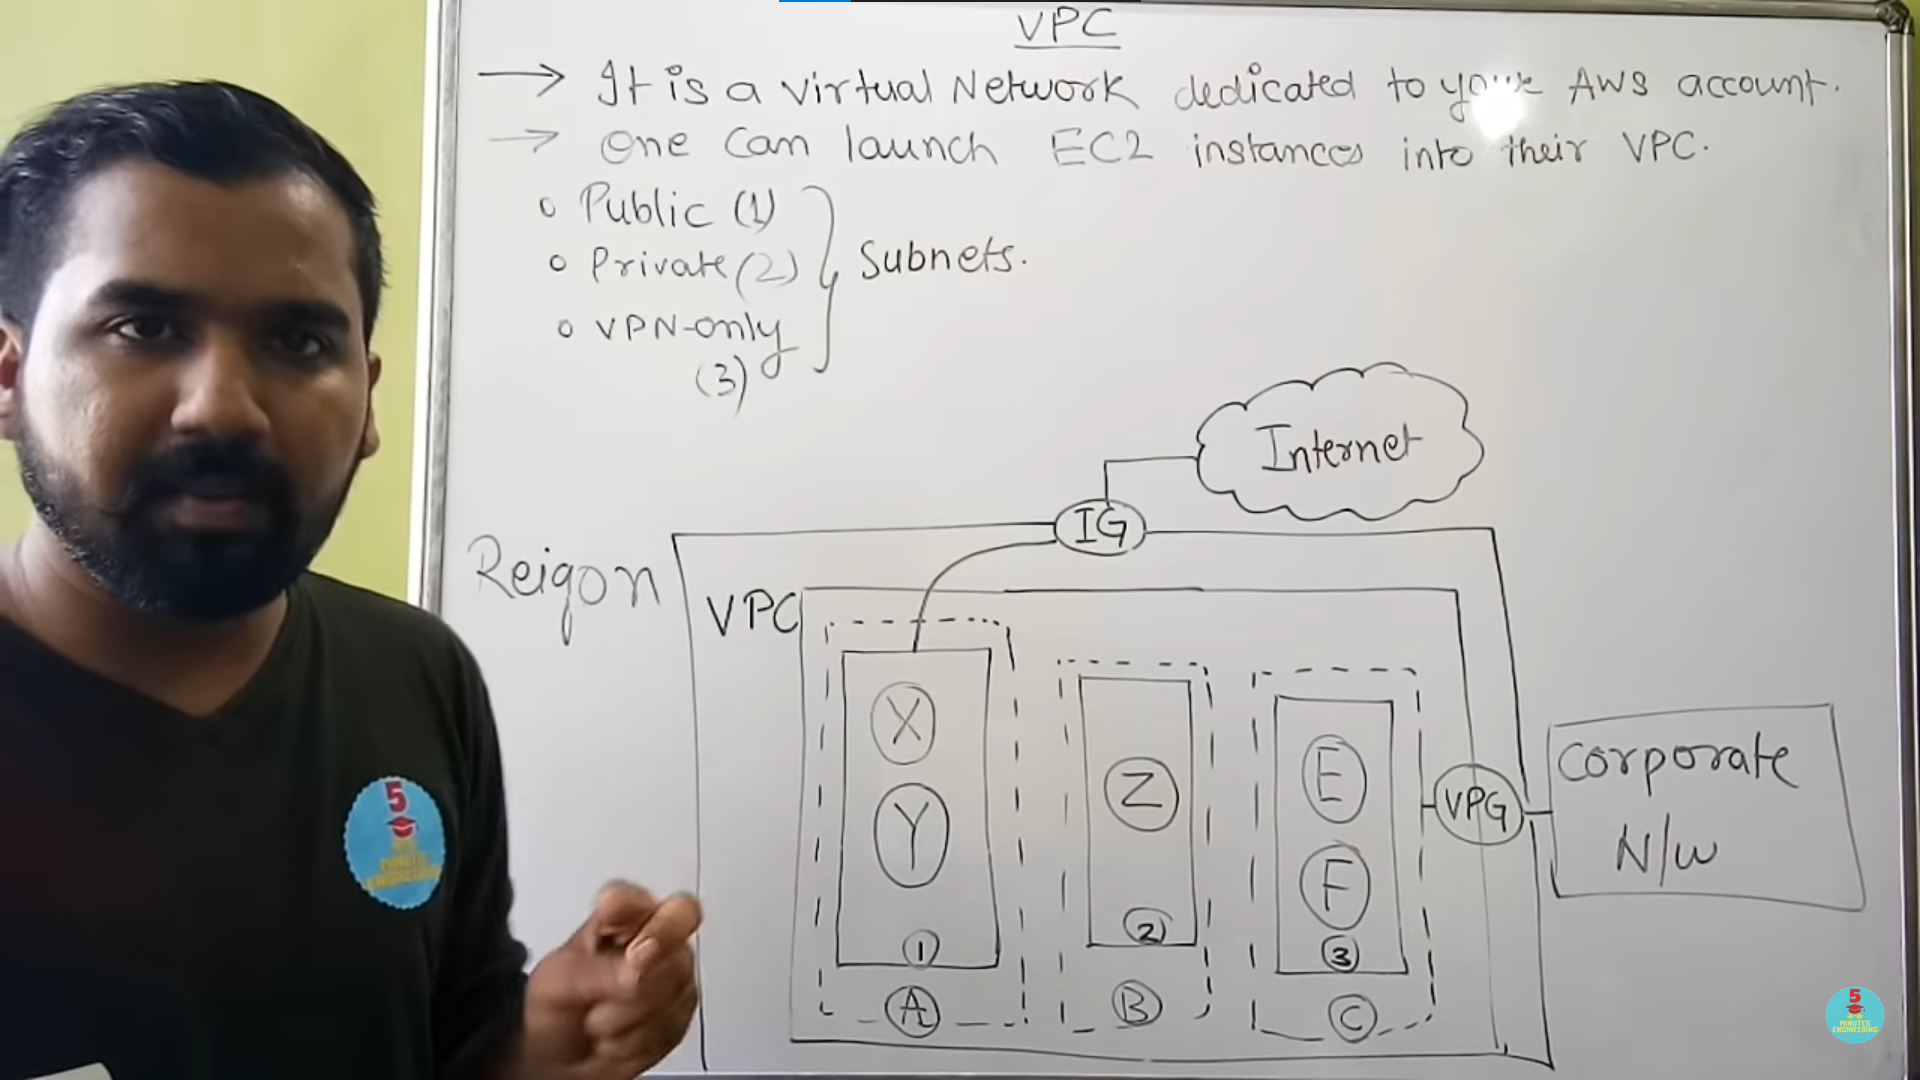 VPC
→ It is a virtual Network dedicated to your AWS account.
→ One can launch EC2 instances into their VPC.
o Public (1)
o Private (2)
Subnets.
o VPN-only
(3)
Internet
IG
Reigon
VPC
X
Y
Z
E
F
VPG
Corporate
N/W
1
2
3
A
B
C
5
MINUTES
ENGINEERING
5
MINUTES
ENGINEERING